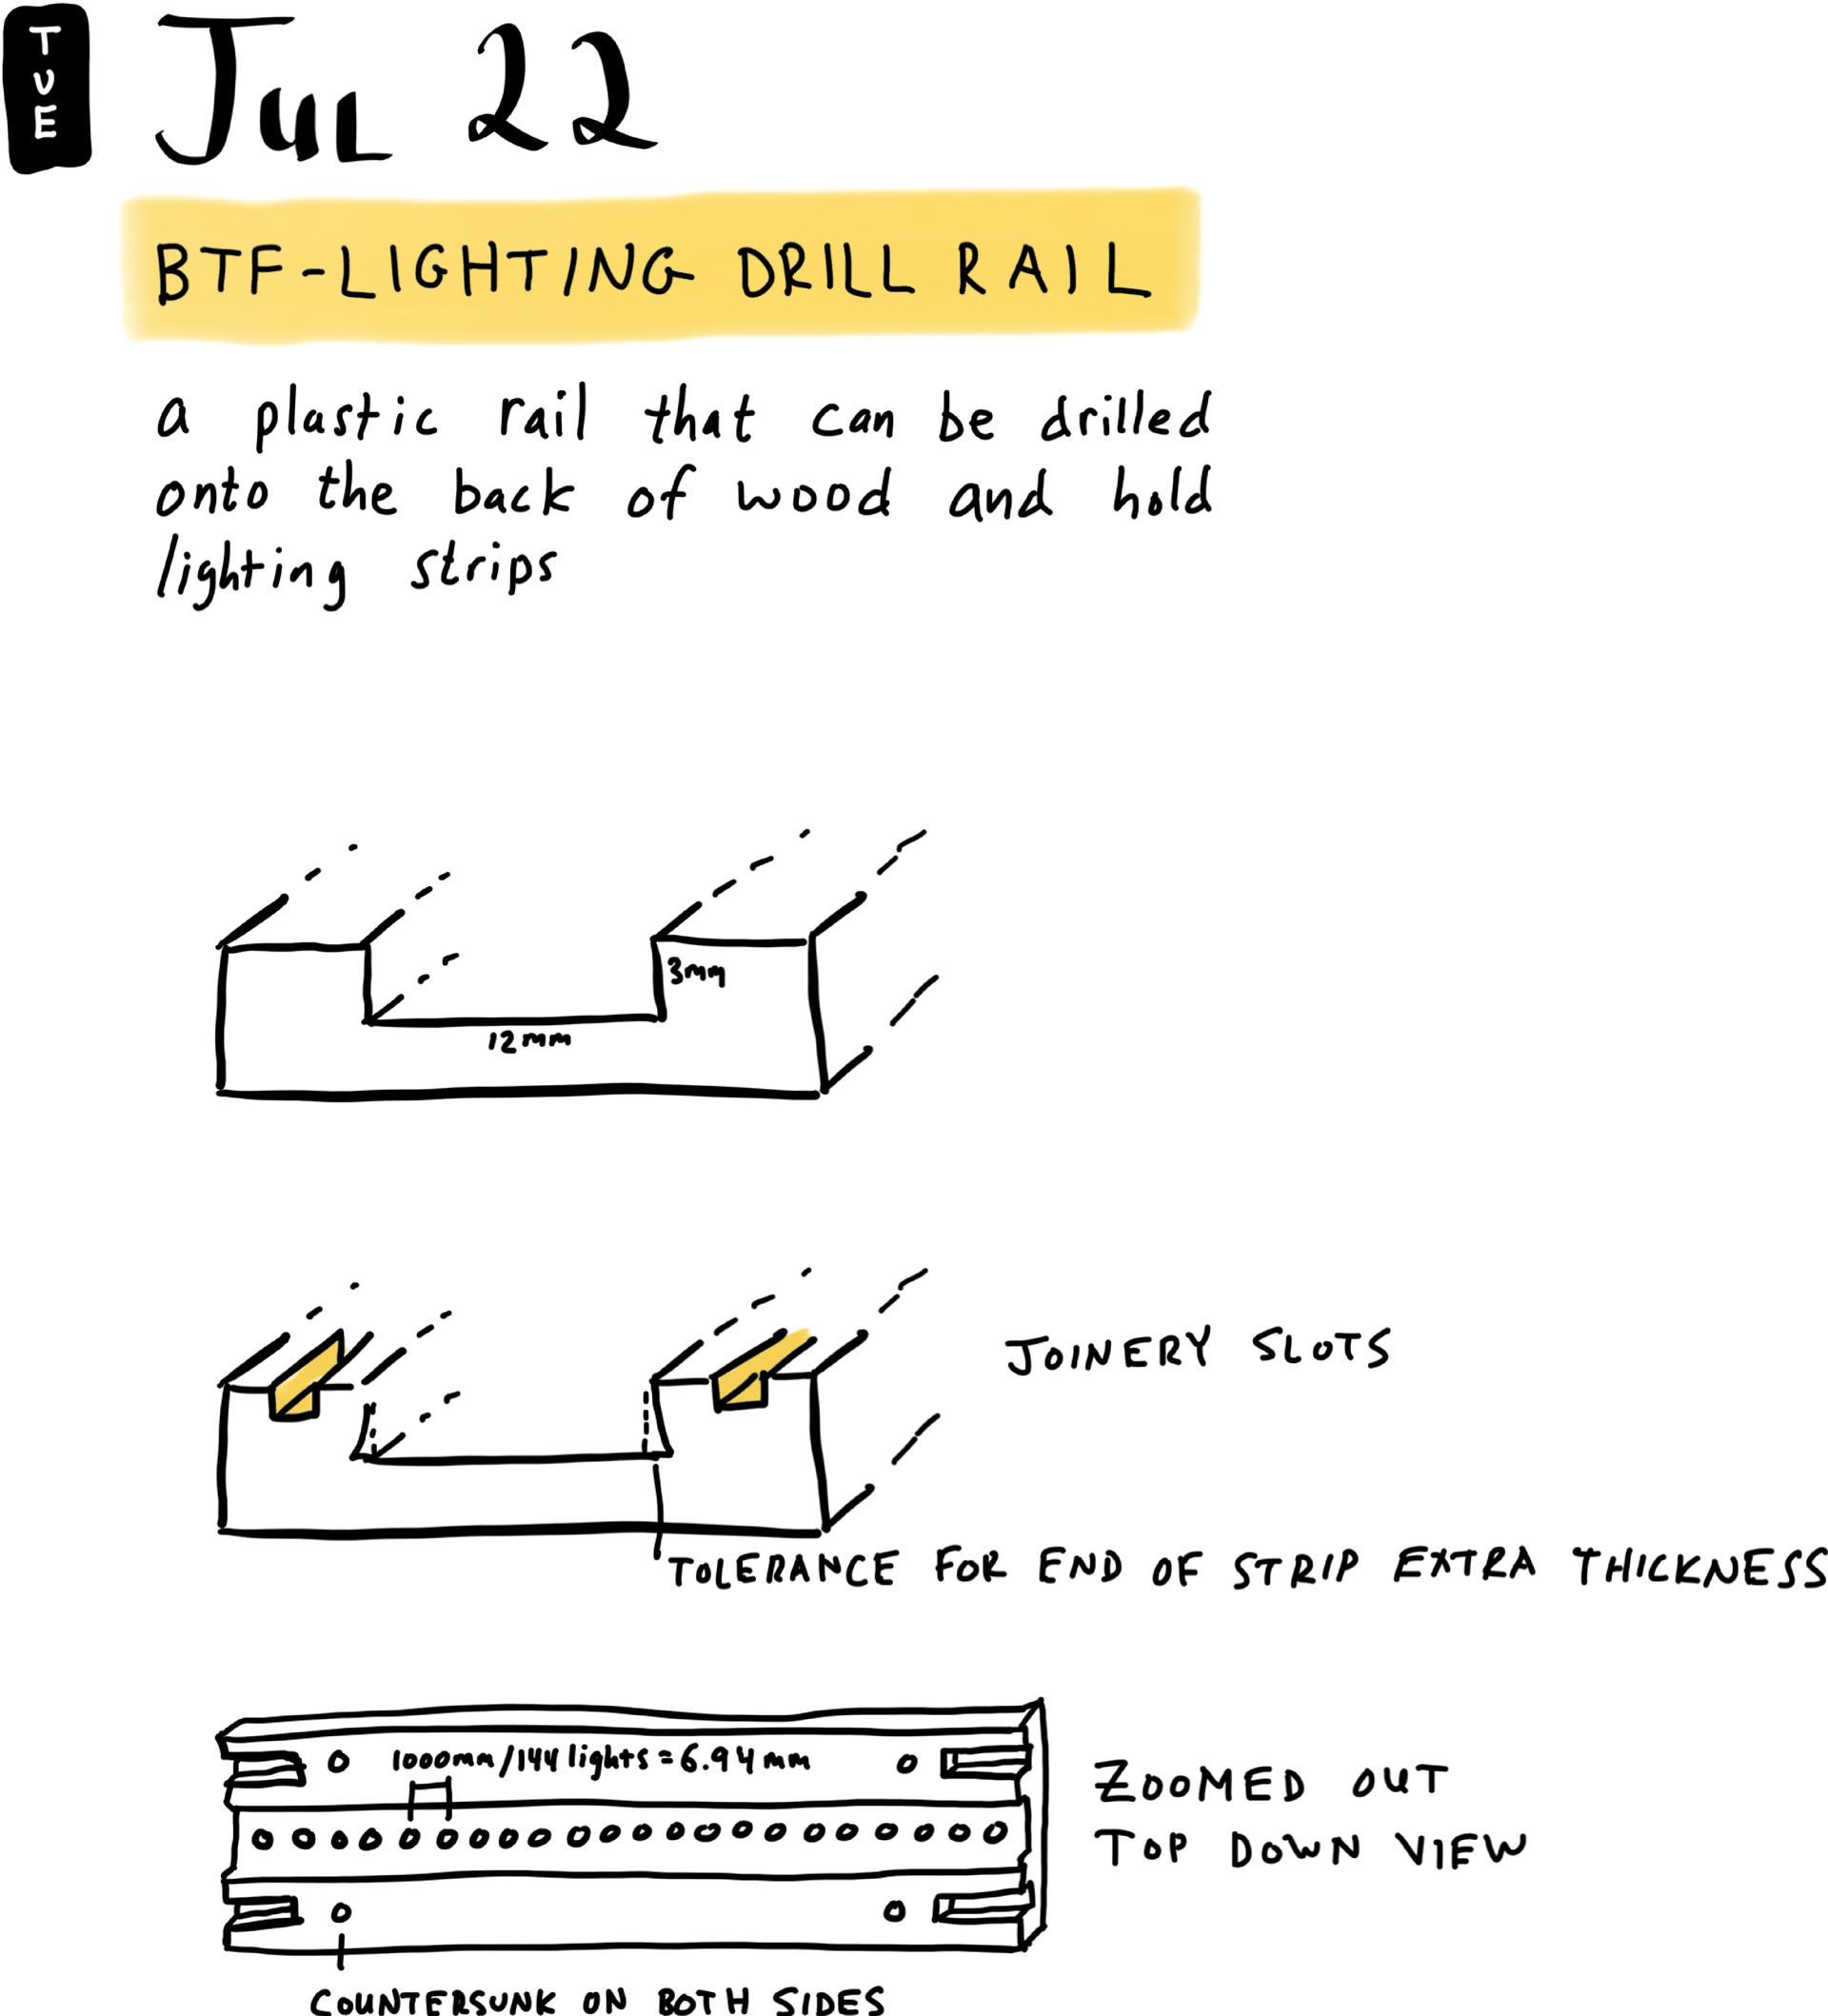 TUE
JUL 22
BTF-LIGHTING DRILL RAIL
a plastic rail that can be drilled
onto the back of wood and hold
lighting strips
3mm
12mm
JOINERY SLOTS
TOLERANCE FOR END OF STRIP EXTRA THICKNESS
1000mm/144 lights = 6.94mm
ZOOMED OUT
TOP DOWN VIEW
COUNTERSUNK ON BOTH SIDES